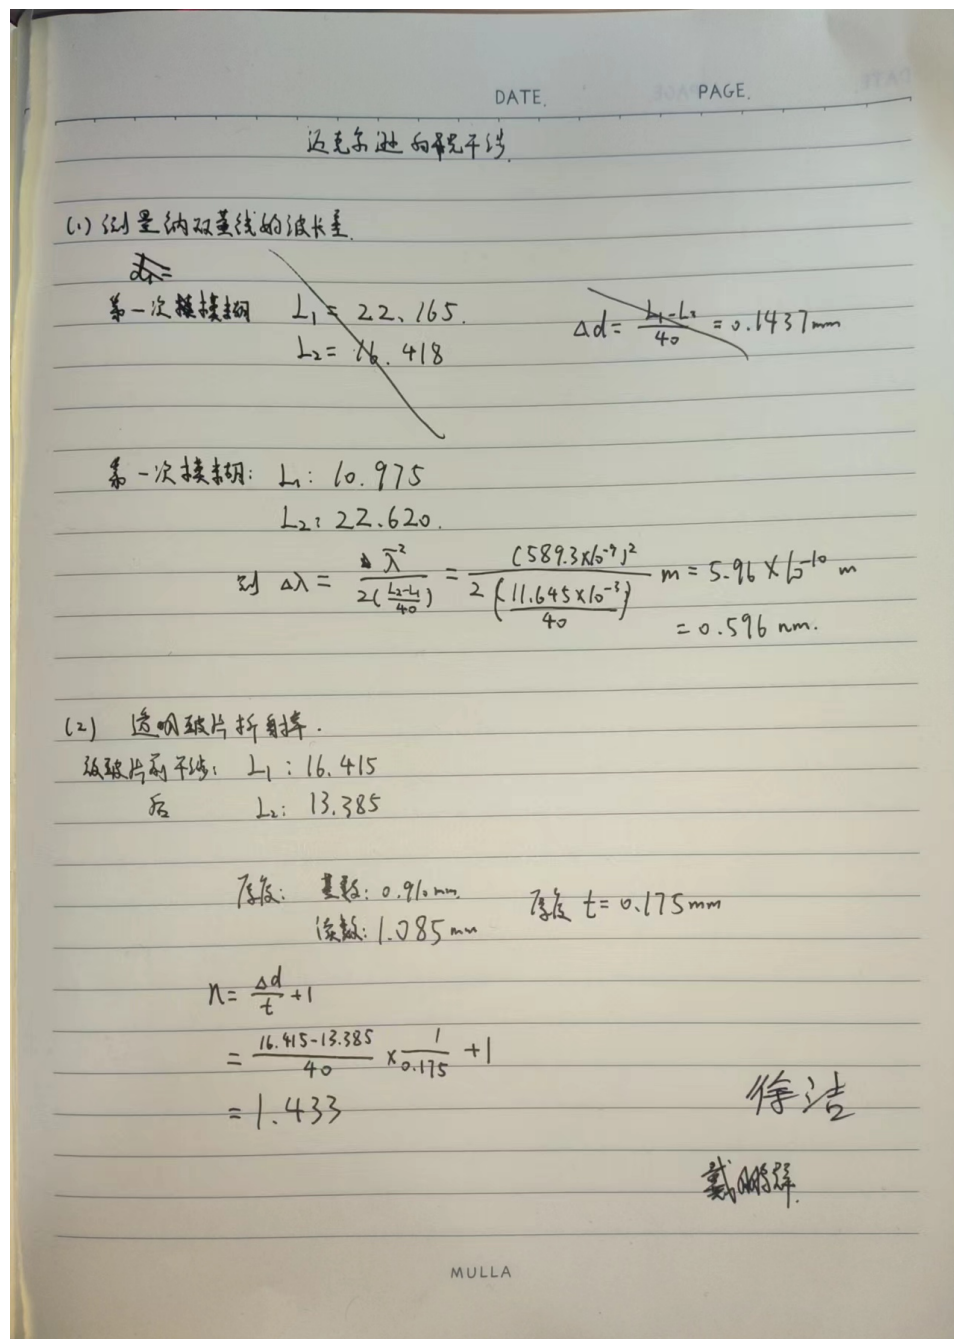 DATE. PAGE.
迈克尔逊白光干涉.
(1) 测量纳双黄线的波长差.
第一次模糊 L₁ = 22.165. Δd = (L₁-L₂)/40 = 0.1437mm
L₂ = 16.418
第一次模糊: L₁: 10.975
L₂: 22.620.
则 Δλ = λ̄²/(2((L₂-L₁)/40)) = (589.3×10⁻⁹)²/(2((11.645×10⁻³)/40)) m = 5.96×10⁻¹⁰ m
= 0.596 nm.
(2) 透明玻片折射率.
放玻片前干涉: L₁: 16.415
后 L₂: 13.385
厚度: 基数: 0.910mm. 厚度 t = 0.175mm
读数: 1.085mm
n = Δd/t +1
= (16.415-13.385)/40 × 1/0.175 +1
= 1.433
徐洁
MULLA